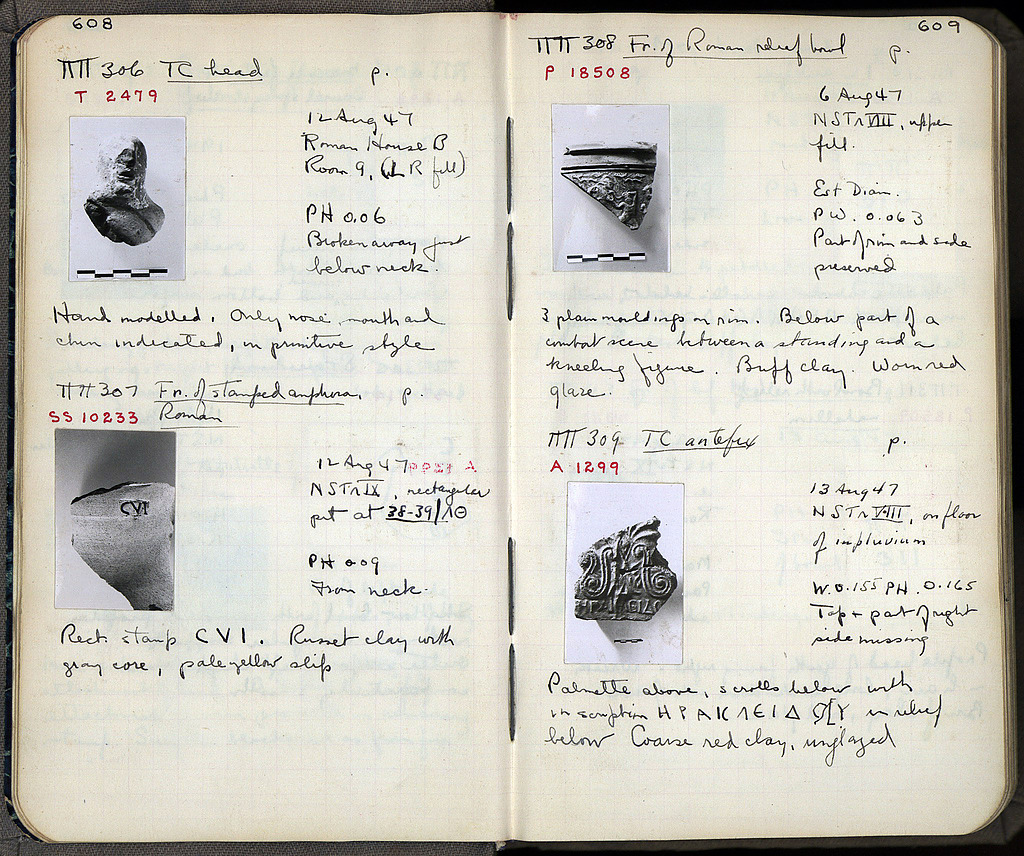 608
ΠΠ 306 TC head p.
T 2479
12 Aug 47
Roman House B
Room 9, (LR fill)
PH 0.06
Broken away just
below neck
Hand modelled. Only nose, mouth and
chin indicated, in primitive style
ΠΠ 307 Fr. of stamped amphora. p.
SS 10233 Roman
12 Aug 47
NSTΛIX, rectangular
pit at 38-39/ΛΘ
PH 0.09
From neck.
CVI
Rect. stamp CVI. Russet clay with
gray core, pale yellow slip
609
ΠΠ 308 Fr. of Roman relief bowl p.
P 18508
6 Aug 47
NSTΛVIII, upper
fill.
Est Diam.
PW. 0.063
Part of rim and side
preserved
3 plain mouldings on rim. Below part of a
combat scene between a standing and a
kneeling figure. Buff clay. Worn red
glaze.
ΠΠ 309 TC antefix p.
A 1299
13 Aug 47
NSTΛVIII, on floor
of impluvium
W. 0.155 PH. 0.165
Top + part of right
side missing
Palmette above, scrolls below with
inscription ΗΡΑΚΛΕΙΔΟ[Υ in relief
below Coarse red clay, unglazed